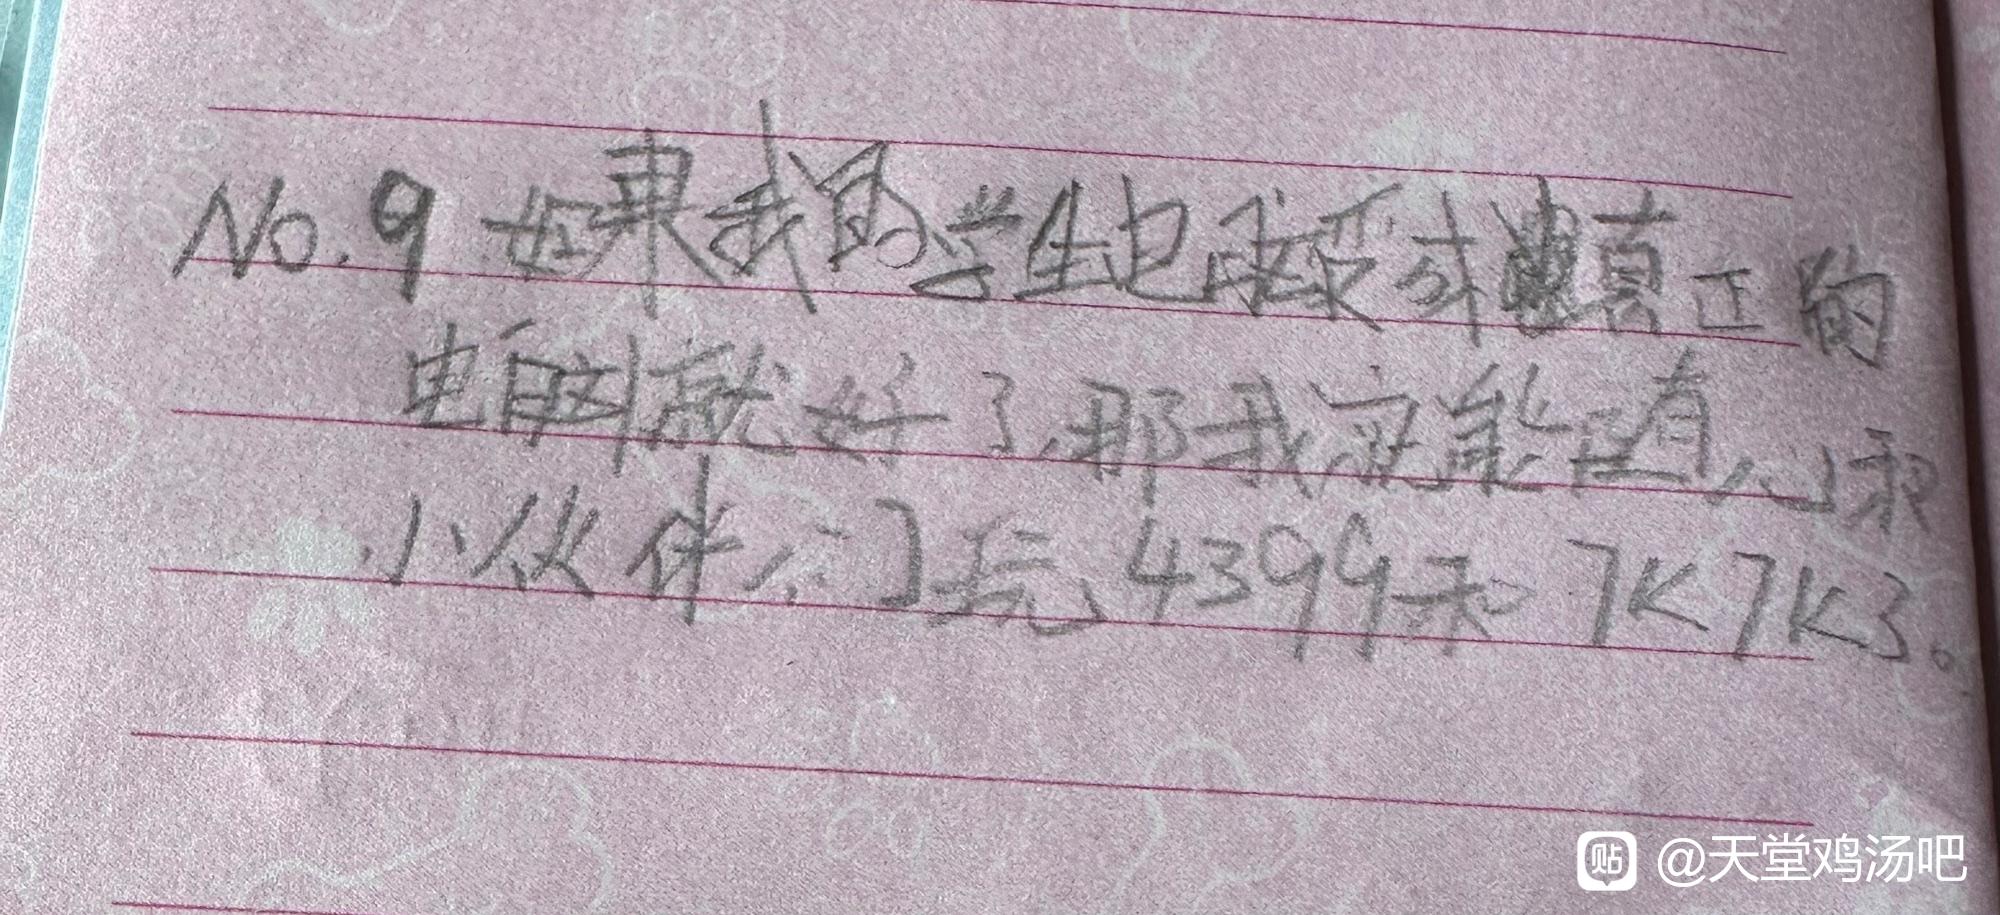 No.9 如果我的学生电脑受成真正的
电脑就好了,那我就能随心和
小伙伴们玩4399和7K7K3。
贴 @天堂鸡汤吧